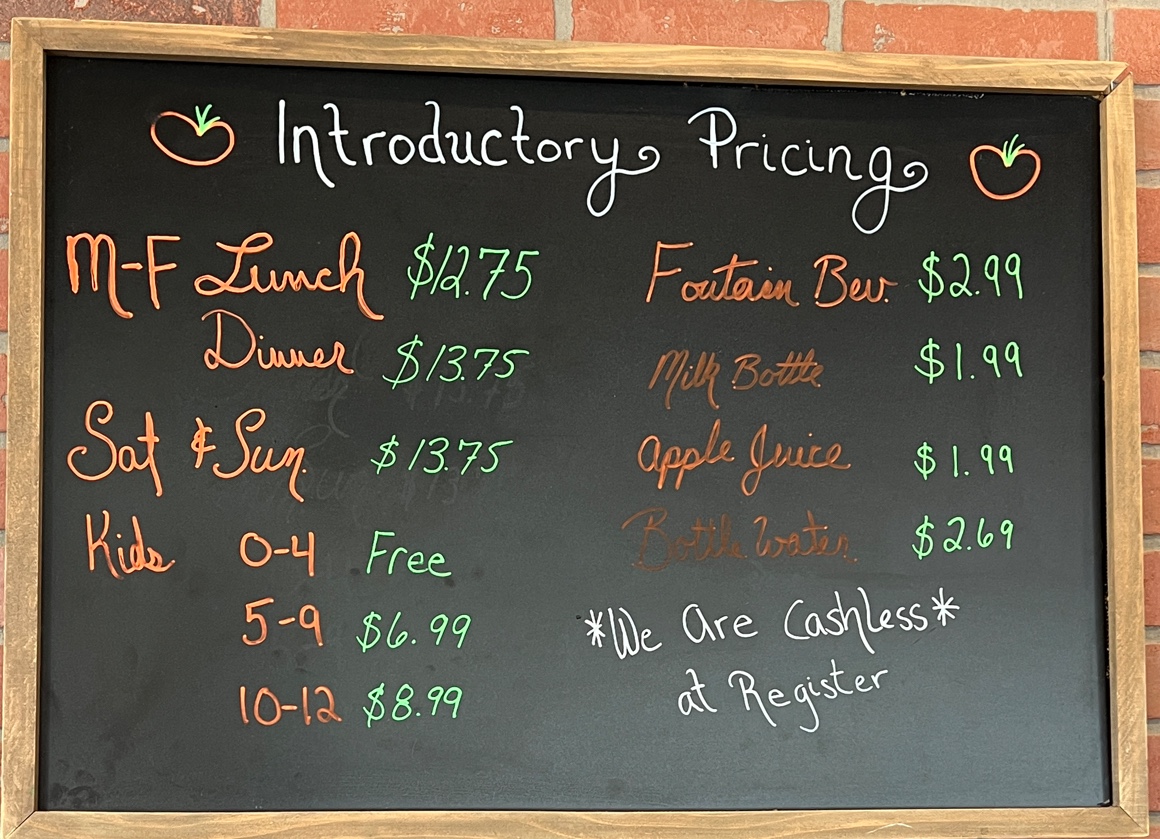 Introductory Pricing
M-F Lunch $12.75
Dinner $13.75
Sat & Sun $13.75
Kids 0-4 Free
5-9 $6.99
10-12 $8.99
Foutain Bev. $2.99
Milk Bottle $1.99
Apple Juice $1.99
Bottle Water $2.69
*We Are Cashless*
at Register